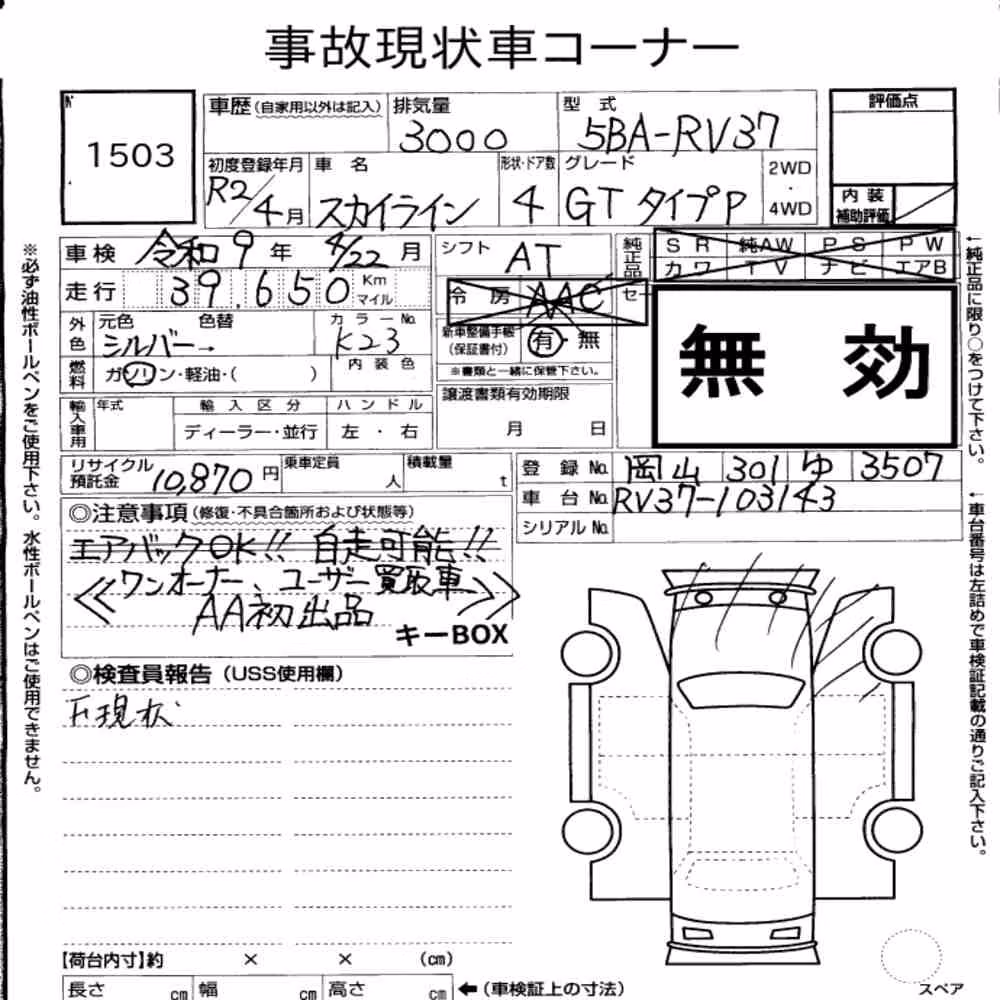 事故現状車コーナー
1503
車歴(自家用以外は記入)
排気量
3000
型 式
5BA-RV37
評価点
初度登録年月
R2/4月
車 名
スカイライン
形状・ドア数
4
グレード
GT タイプP
2WD
・
4WD
内 装
補助評価
車検 令和9年 4/22月
シフト
AT
純正品
SR 純AW PS PW
カワ TV ナビ エアB
走行 39,650 Km マイル
冷 房 AAC
セー
無 効
外色
元色 色替
シルバー→
カラーNo.
K23
新車整備手帳
(保証書付)
有・無
※書類と一緒に保管下さい。
燃料
ガソリン・軽油・( )
内 装 色
輸入車用
年式
輸 入 区 分
ディーラー・並行
ハ ン ド ル
左 ・ 右
譲渡書類有効期限
月 日
リサイクル
預託金
10,870円
乗車定員
人
積載量
t
登 録 No. 岡山 301 ゆ 3507
車 台 No. RV37-103143
シリアルNo.
◎注意事項(修復・不具合箇所および状態等)
エアバックOK!! 自走可能!!
≪ワンオーナー、ユーザー買取車
AA初出品≫
キーBOX
◎検査員報告(USS使用欄)
下現状
【荷台内寸】約 × × (cm)
長さ cm 幅 cm 高さ cm ←(車検証上の寸法)
スペア
※必ず油性ボールペンをご使用下さい。水性ボールペンはご使用できません。
←純正品に限り○をつけて下さい。
←車台番号は左詰めで車検証記載の通りご記入下さい。